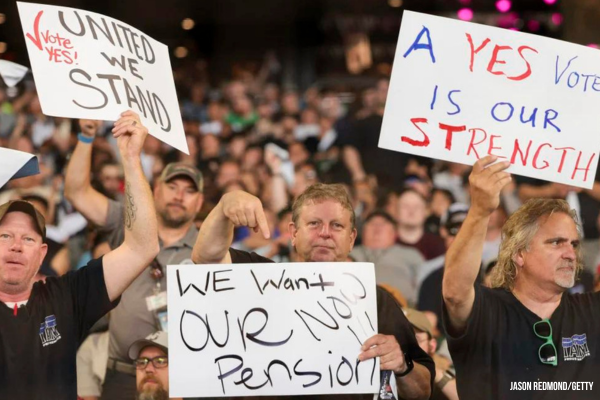 ✓Vote
YES!
UNITED
WE
STAND
A YES Vote
IS OUR
STRENGTH
WE Want
OUR NOW!!!
Pension
JASON REDMOND/GETTY